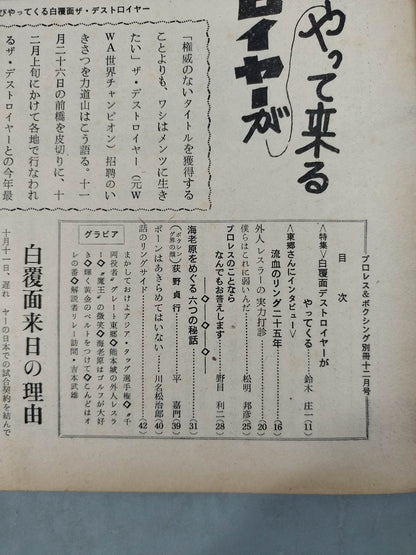 びやってくる白覆面ザ・デストロイヤー
やって来る
ロイヤーが
「権威のないタイトルを獲得する
ことよりも、ワシはメンツに生き
たい」ザ・デストロイヤー（元W
WA世界チャンピオン）招聘のい
きさつを力道山はこう語る。十一
月二十六日の前橋を皮切りに、十
二月上旬にかけて各地で行なわれ
るザ・デストロイヤーとの今年最
プロレス&ボクシング別冊十二月号
目次
〈特集〉白覆面デストロイヤーが
やってくる……鈴木庄一(11)
〈東郷さんにインタビュー〉
流血のリング二十五年……(16)
外人レスラーの実力打診……(20)
僕らはこれに弱いんだ……松明邦彦(25)
プロレスのことなら
なんでもお答えします……野目利二(28)
海老原をめぐる六つの秘話……(31)
(ボクシング界の顔)荻野貞行……平嘉門(39)
ポーンはあきらめてはいない……川名松治郎(40)
話のリングサイド……(42)
グラビア
まかしておけよアジア・タッグ選手権◇〝千
両役者〟グレート東郷◇熊本城の外人レスラ
ー◇〝魔王〟の微笑◇海老原はゴルフが大好
き◇輝く黄金のベルトをつけて◇こんどはオ
レの番◇解説者リレー訪問・吉本武雄
白覆面来日の理由
十月十一日、遅れ
ヤーの日本での試合契約を結んで